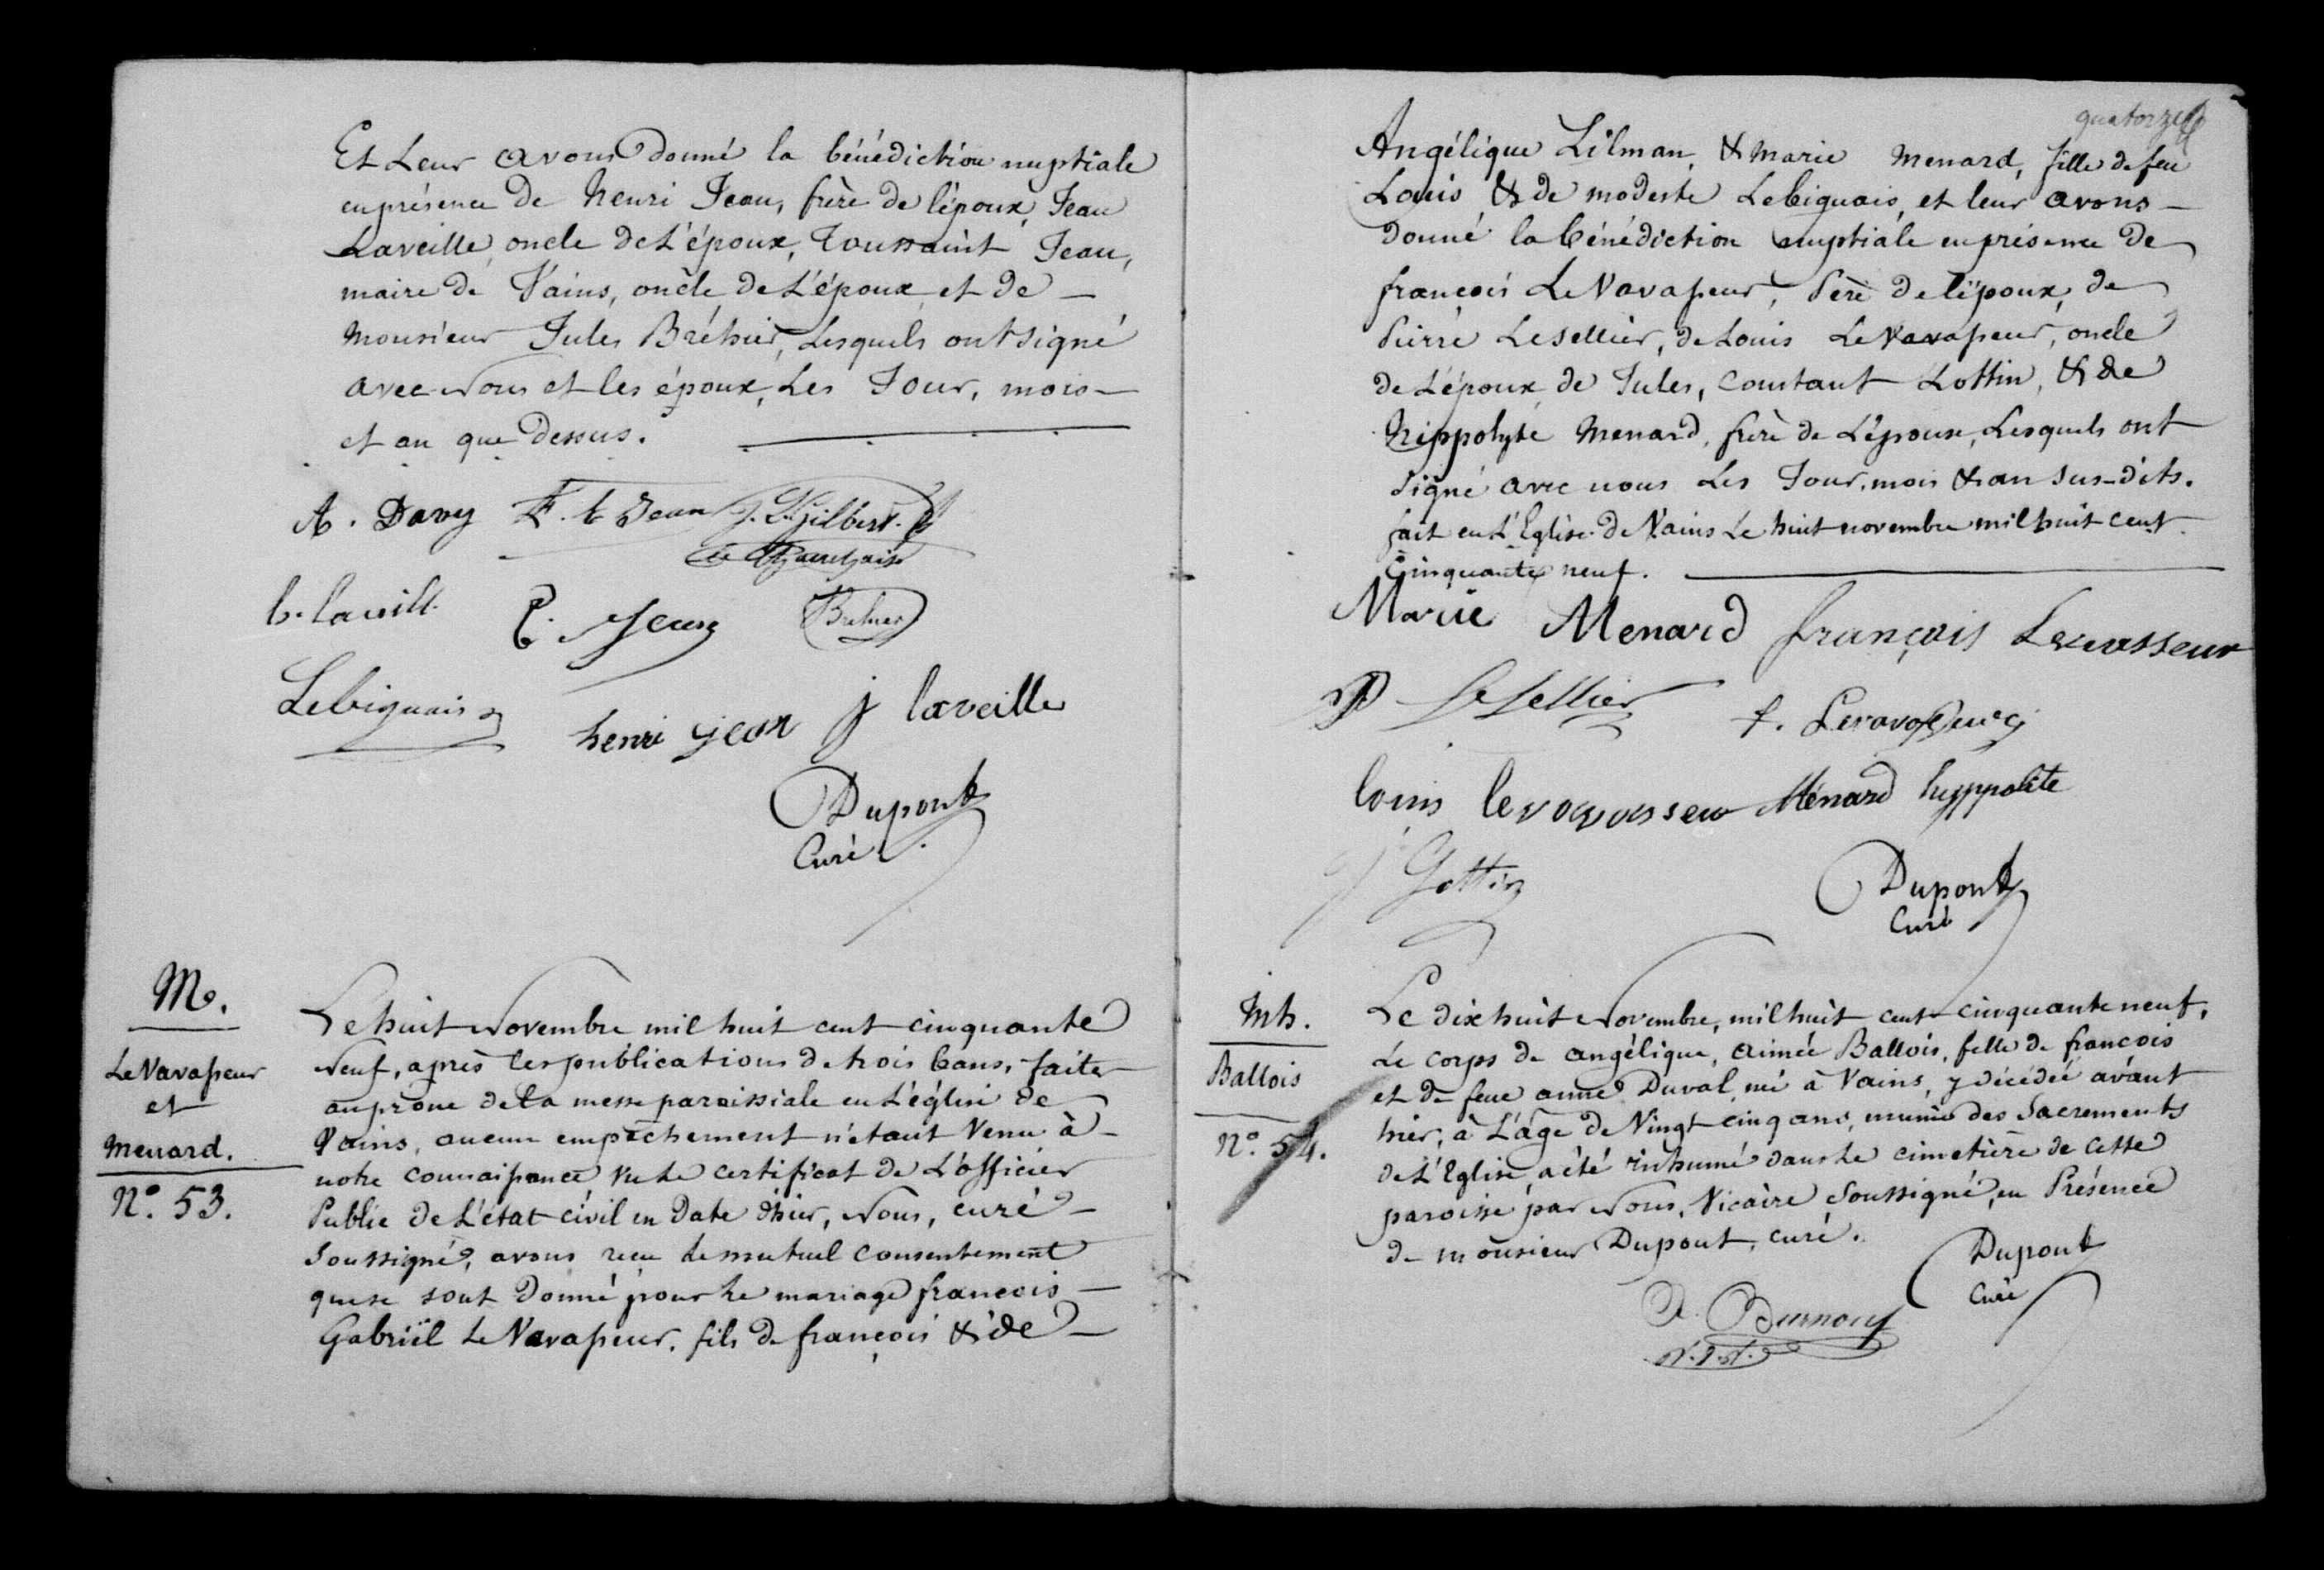 Et Leur avons donné la bénédiction nuptiale
en présence de henri Jean, frère de l'époux, Jean
Laveille, oncle de L'époux, Toussaint Jean,
maire de Vains, oncle de L'époux et de —
Monsieur Jules Bréhier, Lesquels ont signé
avec nous et les époux, Les Jour, mois —
et an que Dessus.
A. Davy F. t. Jean J. L. Gilbert
b. laveill P. Jean Brehier
Lebiguais henri jean j laveille
Dupont
Curé
M.
LeVavasseur
et
Menard.
N.° 53.
Le huit Novembre mil huit cent cinquante
Neuf, après les publications de trois bans, faites
au prône de la messe paroissiale en L'église de
Vains, aucun empêchement n'étant Venu à —
notre connaissance vu le certificat de L'officier
Public de L'état civil en Date d'hier, Nous, curé —
Soussigné, avons reçu le mutuel consentement
que se sont Donné pour le mariage françois —
Gabriël Le Vavasseur, fils de françois & de —
quatorze
Angélique Lilman, & marie Menard, fille de feu
Louis & de modeste Lebiguais, et leur avons —
donné la bénédiction nuptiale en présence de
françois Le Vavasseur, Père de l'époux, de
Pierre Lesellier, de Louis Le Vavasseur, oncle
de L'époux, de Jules, Constant Lottin, & de
hippolyte Menard, frère de L'épouse, Lesquels ont
signé avec nous Les Jour, mois & an sus-dits.
fait en L'Eglise de Vains Le huit novembre mil huit cent
Cinquante neuf.
Marie Menard françois Levavasseur
P Lesellier f. Levavasseur
louis levavasseur Ménard hyppolite
J Lottin
Dupont
Curé
Inh.
Ballois
N.° 54.
Le dix huit Novembre, mil huit cent cinquante neuf,
Le corps de angélique, aimée Ballois, fille de francois
et de feue anne Duval, né à Vains, y décédée avant
hier, à L'âge de Vingt cinq ans, munie des Sacrements
de L'Eglise, a été inhumé dans le cimetière de cette
paroisse par Nous, Vicaire Soussigné, en Présence
de monsieur Dupont, curé.
Dupont
Curé